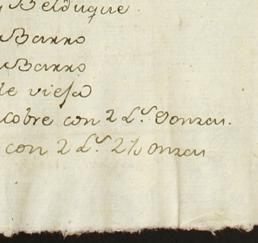 y Belduque.
Barro
Barro
de vieja
cobre con 2 L.ˢ 9 onzas.
con 2 L.ˢ 2½ onzas